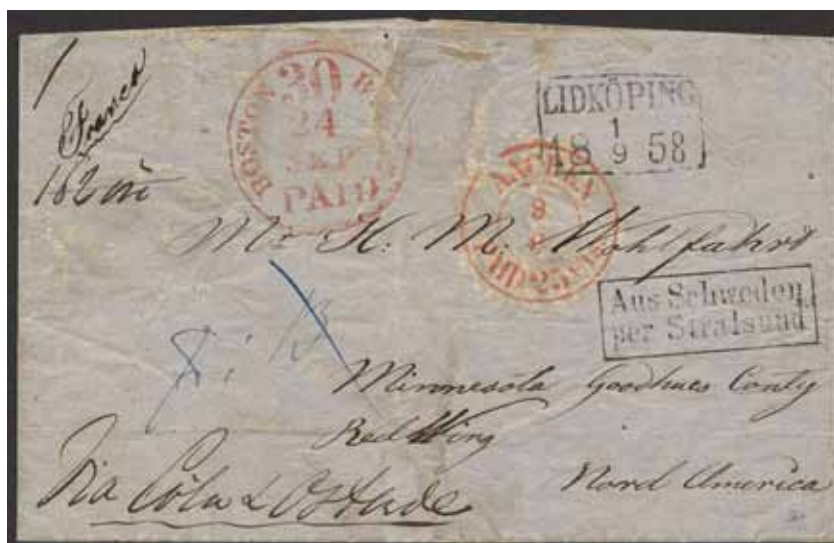 Franco
182 öre
BOSTON
30
24
SEP
PAID
LIDKÖPING
1
18 9 58
AACHEN
9
PAID 25 Cts
Mr H. M. Wohlfahrt
Aus Schweden
per Stralsund
Minnesota Goodhues Conty
Red Wing
Nord America
Via Cöln & Ostade